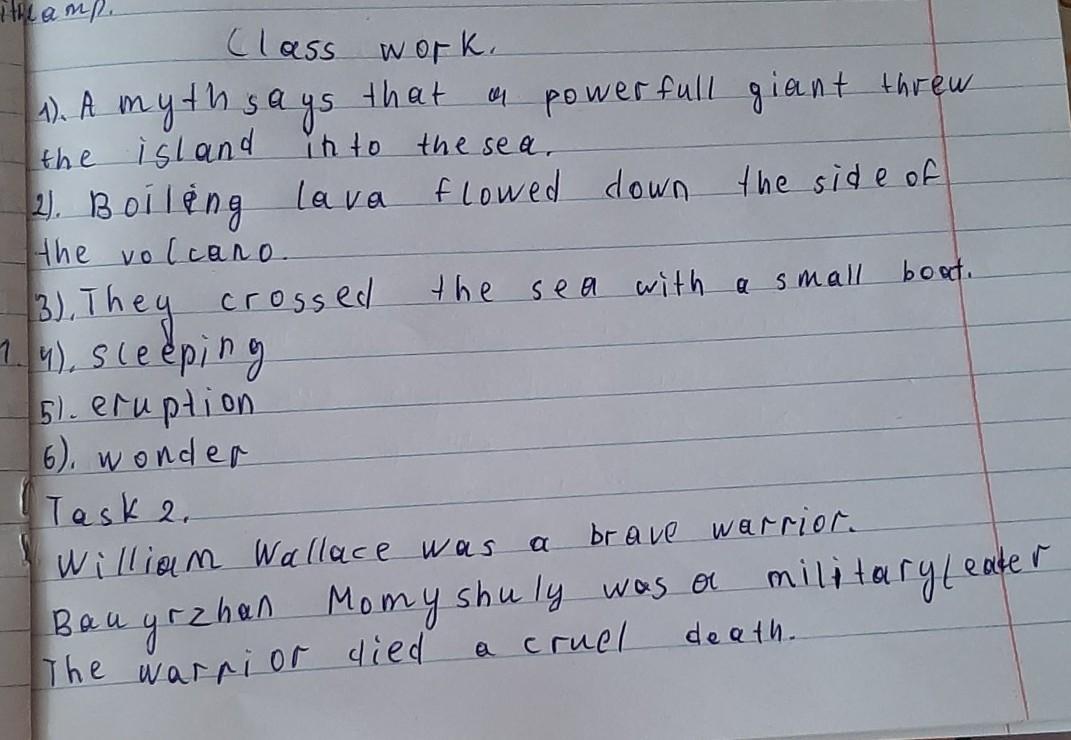 Class work.
1). A myth says that a powerfull giant threw
the island into the sea.
2). Boileng lava flowed down the side of
the volcano.
3). They crossed the sea with a small boat.
4). sleeping
5). eruption
6). wonder
Task 2.
William Wallace was a brave warrior.
Bauyrzhan Momyshuly was a military leader
The warrior died a cruel death.